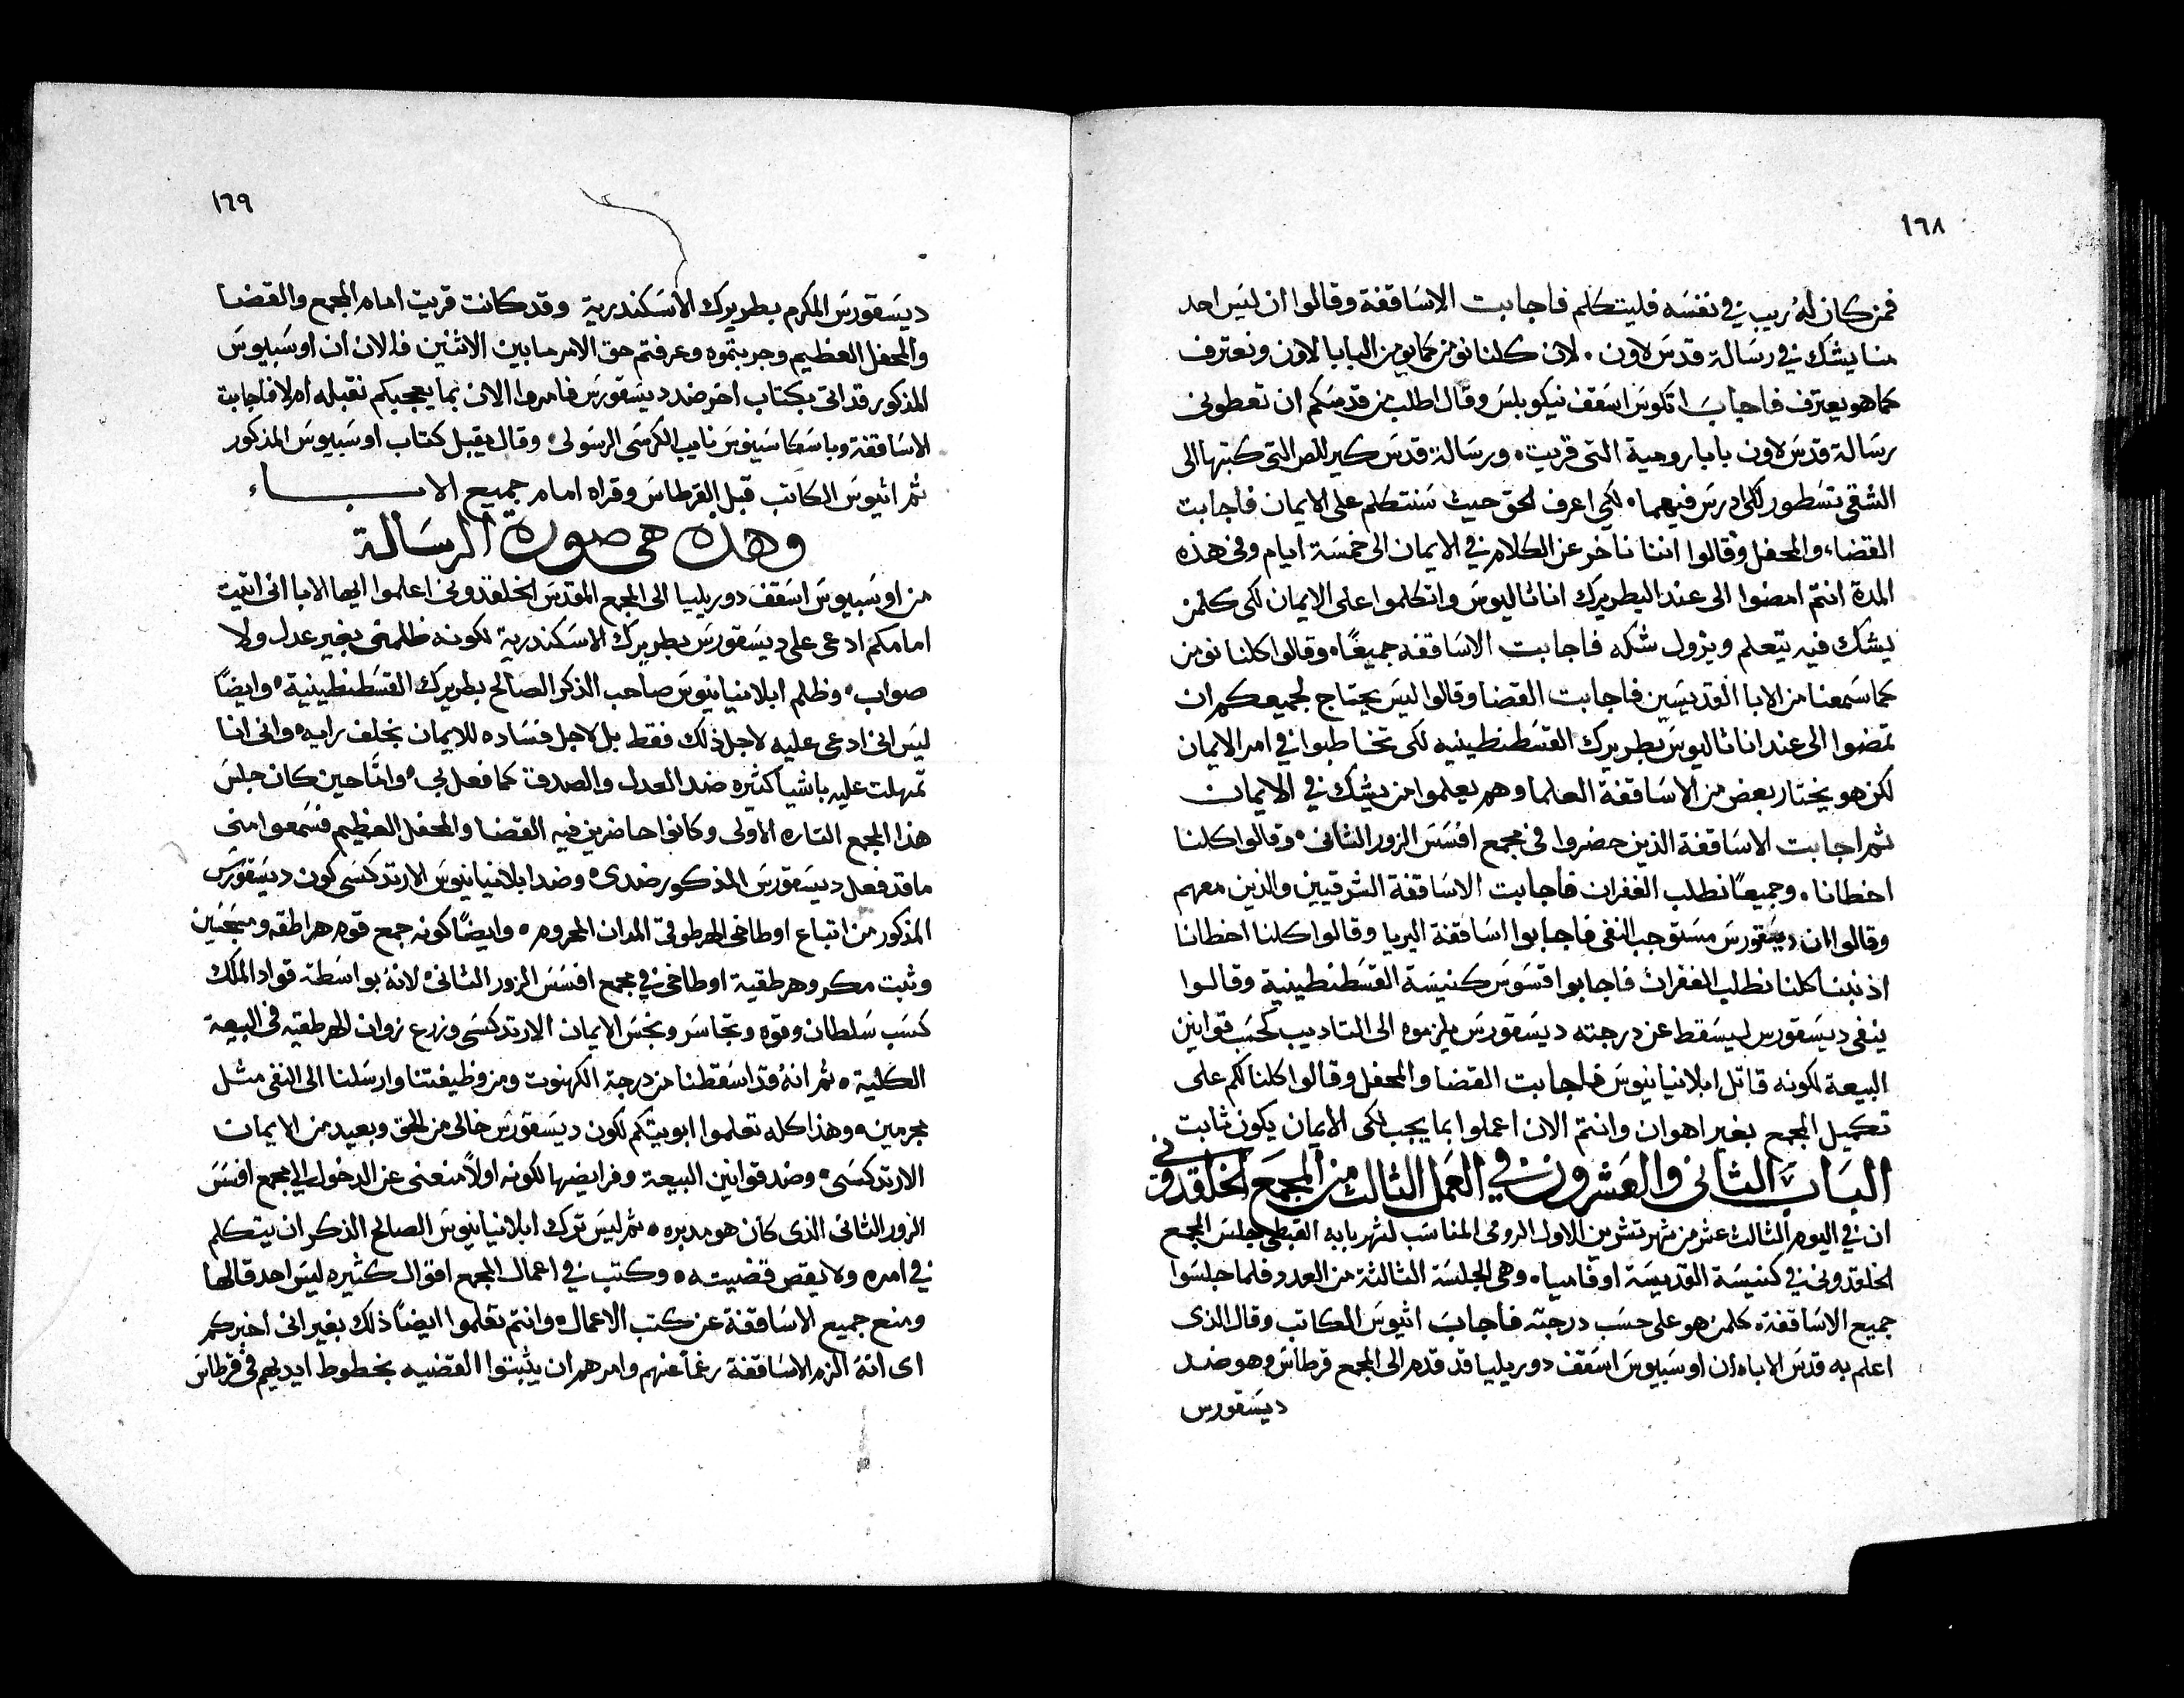 ١٦٨
فمن كان له ريب في نفسه فليتكلم فاجابت الاساقفة وقالوا ان ليس احد
منا يشك في رسالة قدس لاون لان كلنا نومن كما يومن البابا لاون ونعترف
كما هو يعترف فاجاب اتكوس اسقف نيكوبلس وقال اطلب من قدسكم ان تعطونى
رسالة قدس لاون بابا رومية التى قريت ورسالة قدس كيرللص التى كتبها الى
الشقى نسطور لكى ادرس فيهما لكى اعرف الحق حيث سنتكلم على الايمان فاجابت
القضاء والمحفل وقالوا اننا ناخر عن الكلام في الايمان الى خمسة ايام وفى هذه
المدة انتم امضوا الى عند البطريرك اناثاليوس واتكلموا على الايمان لكى كلمن
يشك فيه يتعلم ويزول شكه فاجابت الاساقفه جميعًا وقالوا كلنا نومن
كما سمعنا من الابا القديسين فاجابت القضا وقالوا ليس يحتاج لجميعكم ان
تمضوا الى عند اناثاليوس بطريرك القسطنطينيه لكى تخاطبوا في امر الايمان
لكن هو يختار بعض من الاساقفة العلما وهم يعلموا من يشك في الايمان
ثم اجابت الاساقفة الذين حضروا فى مجمع افسس الزور الثانى وقالوا كلنا
اخطانا وجميعًا نطلب الغفران فاجابت الاساقفة الشرقيين والذين معهم
وقالوا ان ديسقورس مستوجب النفى فاجابوا اساقفة اليريا وقالوا كلنا اخطانا
اذنبنا كلنا نطلب الغفران فاجابوا اقسوس كنيسة القسطنطينية وقالوا
ينفى ديسقورس ليسقط عن درجته ديسقورس يلزموه الى التاديب كحسب قوانين
البيعة لكونه قاتل ابلانيانيوس فاجابت القضا والمحفل وقالوا كلنا لكم على
تكميل المجمع بغير اهوان وانتم الان اعملوا بما يجب لكى الايمان يكون ثابت
الباب الثانى والعشرون في العمل الثالث من المجمع الخلقدونى
ان في اليوم الثالث عشر من شهر تشرين الاول الرومى المناسب لشهر بابه القبطى جلس المجمع
الخلقدونى في كنيسة القديسة اوفاميا وهى الجلسة الثالثة من العدد فلما جلسوا
جميع الاساقفة كلمن هو على حسب درجته فاجاب اثيوس الكاتب وقال الذى
اعلم به قدس الاباء ان اوسبيوس اسقف دوريليا قد قدم الى المجمع قرطاس وهو ضد
ديسقورس
١٦٩
ديسقورس المكرم بطريرك الاسكندرية وقد كانت قريت امام المجمع والقضا
والمحفل العظيم وجربتموه وعرفتم حق الامر ما بين الاثنين فالان ان اوسبيوس
المذكور قد اتى بكتاب اخر ضد ديسقورس فامروا الان بما يعجبكم نقبله ام لا فاجابت
الاساقفة وباسكاسينوس نايب الكرسى الرسولى وقال يقبل كتاب اوسبيوس المذكور
ثم اثيوس الكاتب قبل القرطاس وقراه امام جميع الاباء
وهذه هى صورة الرسالة
من اوسبيوس اسقف دوريليا الى المجمع المقدس الخلقدونى اعلموا ايها الابا انى اتيت
امامكم ادعى على ديسقورس بطريرك الاسكندرية لكونه ظلمنى بغير عدل ولا
صواب وظلم ابلانيانيوس صاحب الذكر الصالح بطريرك القسطنطينية وايضًا
ليس انى ادعى عليه لاجل ذلك فقط بل لاجل فساده للايمان بخلف رايه وانى انا
تمهلت عليه باشيا كثيره ضد العدل والصدق كما فعل بى وامّا حين كان جلس
هذا المجمع التاره الاولى وكانوا حاضرين فيه القضا والمحفل العظيم فسمعوا منى
ما قد فعل ديسقورس المذكور ضدى وضد ابلانيانيوس الارتدكسى كون ديسقورس
المذكور من اتباع اوطاخى الهرطوقى المدان المحروم وايضًا كونه جمع قوم هراطقه ومسجنين
وثبت مكر وهرطقية اوطاخى في مجمع افسس الزور الثانى لانه بواسطة قواد الملك
كسب سلطان وقوه وتجاسر ونجس الايمان الارتدكسى وزرع زوان الهرطقيه فى البيعة
الكلية ثم انه قد اسقطنا من درجة الكهنوت ومن وظيفتنا وارسلنا الى النفى مثل
مجرمين وهذا كله تعلموا ابويتكم لكون ديسقورس خالى من الحق وبعيد من الايمان
الارتدكسى وضد قوانين البيعة وفرايضها لكونه اولاً منعنى عن الدخول الى مجمع افسس
الزور الثانى الذى كان هو مدبره ثم ليس ترك ابلانيانيوس الصالح الذكر ان يتكلم
في امره ولا يقص قضيته وكتب في اعمال المجمع اقوال كثيره ليس احد قالها
ومنع جميع الاساقفة عن كتب الاعمال وانتم تعلموا ايضًا ذلك بغير انى اخبركم
اى انه الزم الاساقفة رغمًا عنهم وامرهم ان يثبتوا القضيه بخطوط ايديهم فى قرطاس